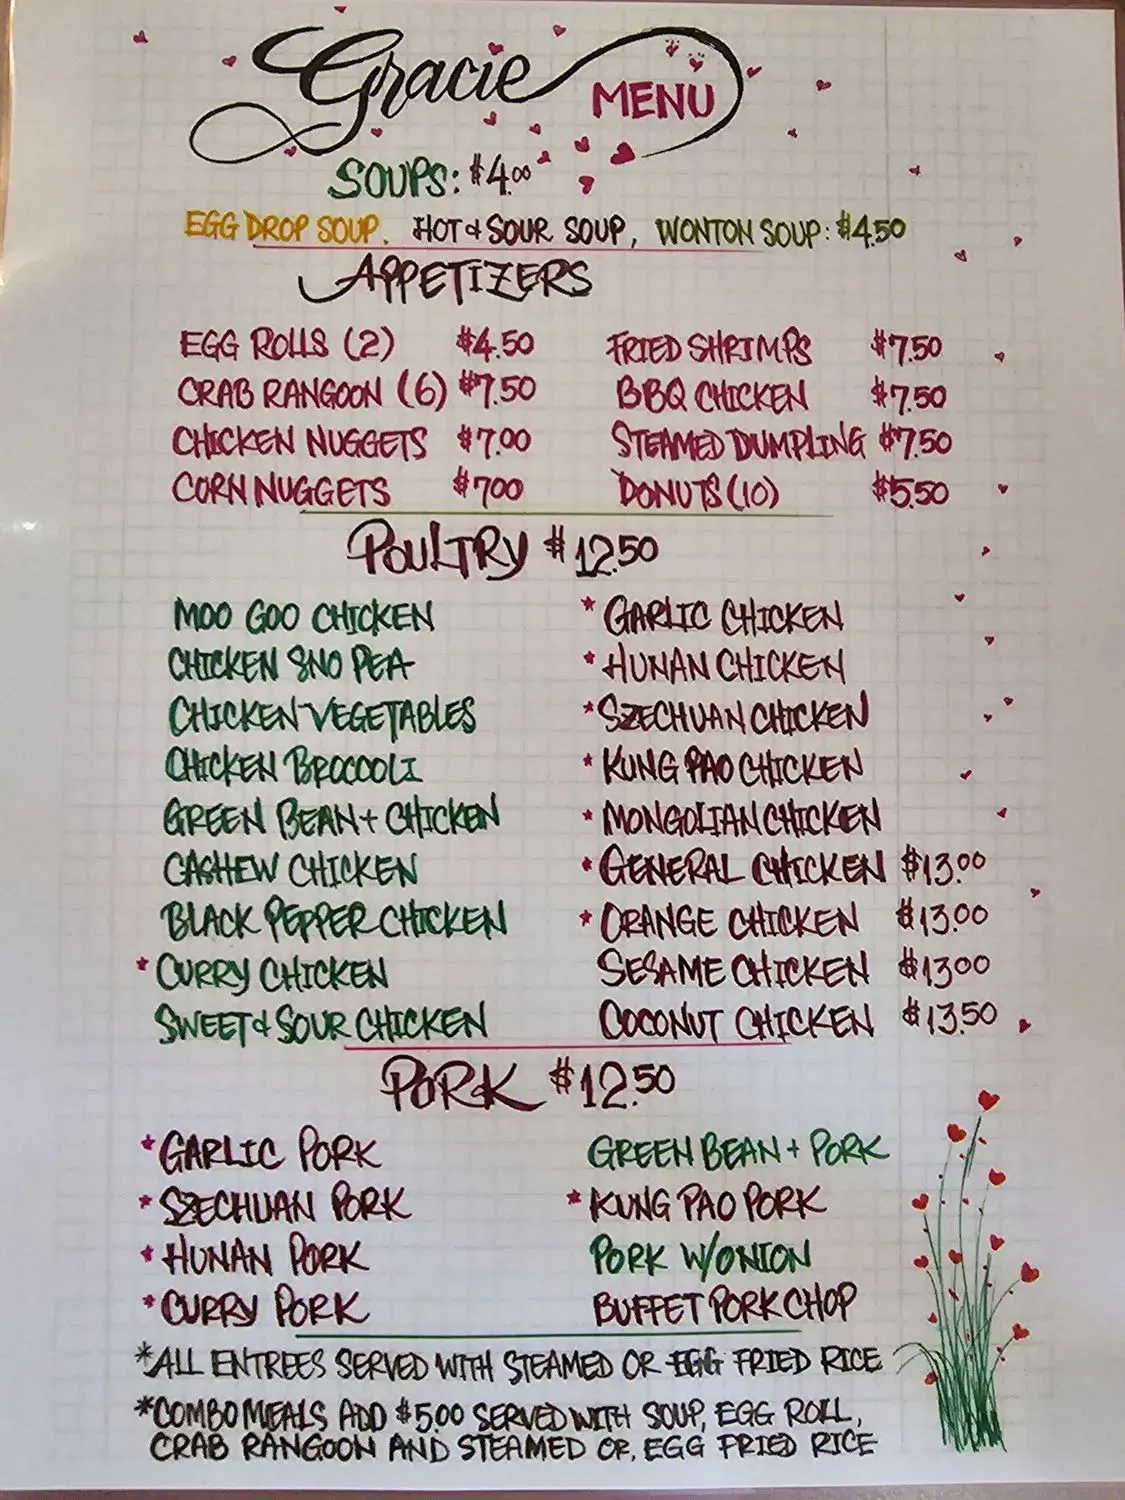 Gracie MENU
SOUPS: $4.00
EGG DROP SOUP. HOT & SOUR SOUP, WONTON SOUP: $4.50
APPETIZERS
EGG ROLLS (2) $4.50 FRIED SHRIMPS $7.50
CRAB RANGOON (6) $7.50 BBQ CHICKEN $7.50
CHICKEN NUGGETS $7.00 STEAMED DUMPLING $7.50
CORN NUGGETS $700 DONUTS (10) $5.50
POULTRY $12.50
MOO GOO CHICKEN * GARLIC CHICKEN
CHICKEN SNO PEA * HUNAN CHICKEN
CHICKEN VEGETABLES * SZECHUAN CHICKEN
CHICKEN BROCOOLI * KUNG PAO CHICKEN
GREEN BEAN + CHICKEN * MONGOLIAN CHICKEN
CASHEW CHICKEN * GENERAL CHICKEN $13.00
BLACK PEPPER CHICKEN * ORANGE CHICKEN $13.00
* CURRY CHICKEN SESAME CHICKEN $1300
SWEET & SOUR CHICKEN COCONUT CHICKEN $13.50
PORK $12.50
* GARLIC PORK GREEN BEAN + PORK
* SZECHUAN PORK * KUNG PAO PORK
* HUNAN PORK PORK W/ONION
* CURRY PORK BUFFET PORK CHOP
*ALL ENTREES SERVED WITH STEAMED OR EGG FRIED RICE
*COMBO MEALS ADD $5.00 SERVED WITH SOUP, EGG ROLL,
CRAB RANGOON AND STEAMED OR, EGG FRIED RICE